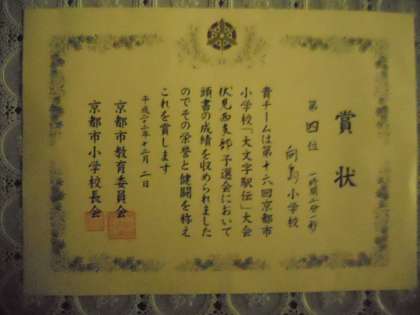 賞状
第四位 一時間二分一秒
向島小学校
貴チームは第十六回京都市
小学校「大文字駅伝」大会
伏見西支部予選会において
頭書の成績を収められました
のでその栄誉と健闘を称え
これを賞します
平成 年十二月二日
京都市教育委員会
京都市小学校長会